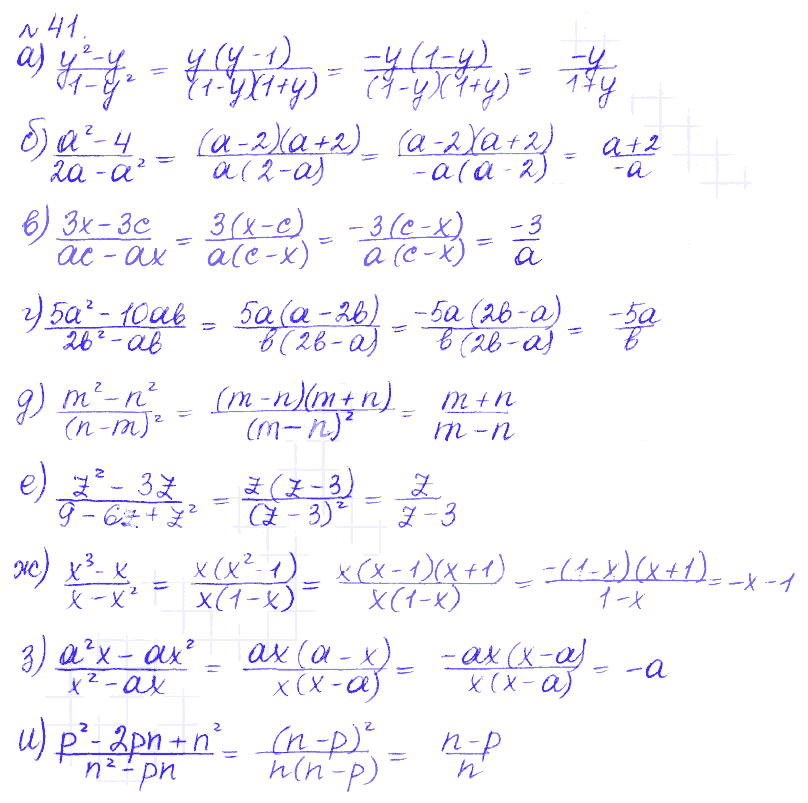 № 41.
а) (y² - y)/(1 - y²) = y(y - 1)/((1 - y)(1 + y)) = -y(1 - y)/((1 - y)(1 + y)) = -y/(1 + y)
б) (a² - 4)/(2a - a²) = (a - 2)(a + 2)/(a(2 - a)) = (a - 2)(a + 2)/(-a(a - 2)) = (a + 2)/(-a)
в) (3x - 3c)/(ac - ax) = 3(x - c)/(a(c - x)) = -3(c - x)/(a(c - x)) = -3/a
г) (5a² - 10aв)/(2в² - aв) = 5a(a - 2в)/(в(2в - a)) = -5a(2в - a)/(в(2в - a)) = -5a/в
д) (m² - n²)/(n - m)² = (m - n)(m + n)/(m - n)² = (m + n)/(m - n)
е) (z² - 3z)/(9 - 6z + z²) = z(z - 3)/(z - 3)² = z/(z - 3)
ж) (x³ - x)/(x - x²) = x(x² - 1)/(x(1 - x)) = x(x - 1)(x + 1)/(x(1 - x)) = -(1 - x)(x + 1)/(1 - x) = -x - 1
з) (a²x - ax²)/(x² - ax) = ax(a - x)/(x(x - a)) = -ax(x - a)/(x(x - a)) = -a
и) (p² - 2pn + n²)/(n² - pn) = (n - p)²/(n(n - p)) = (n - p)/n